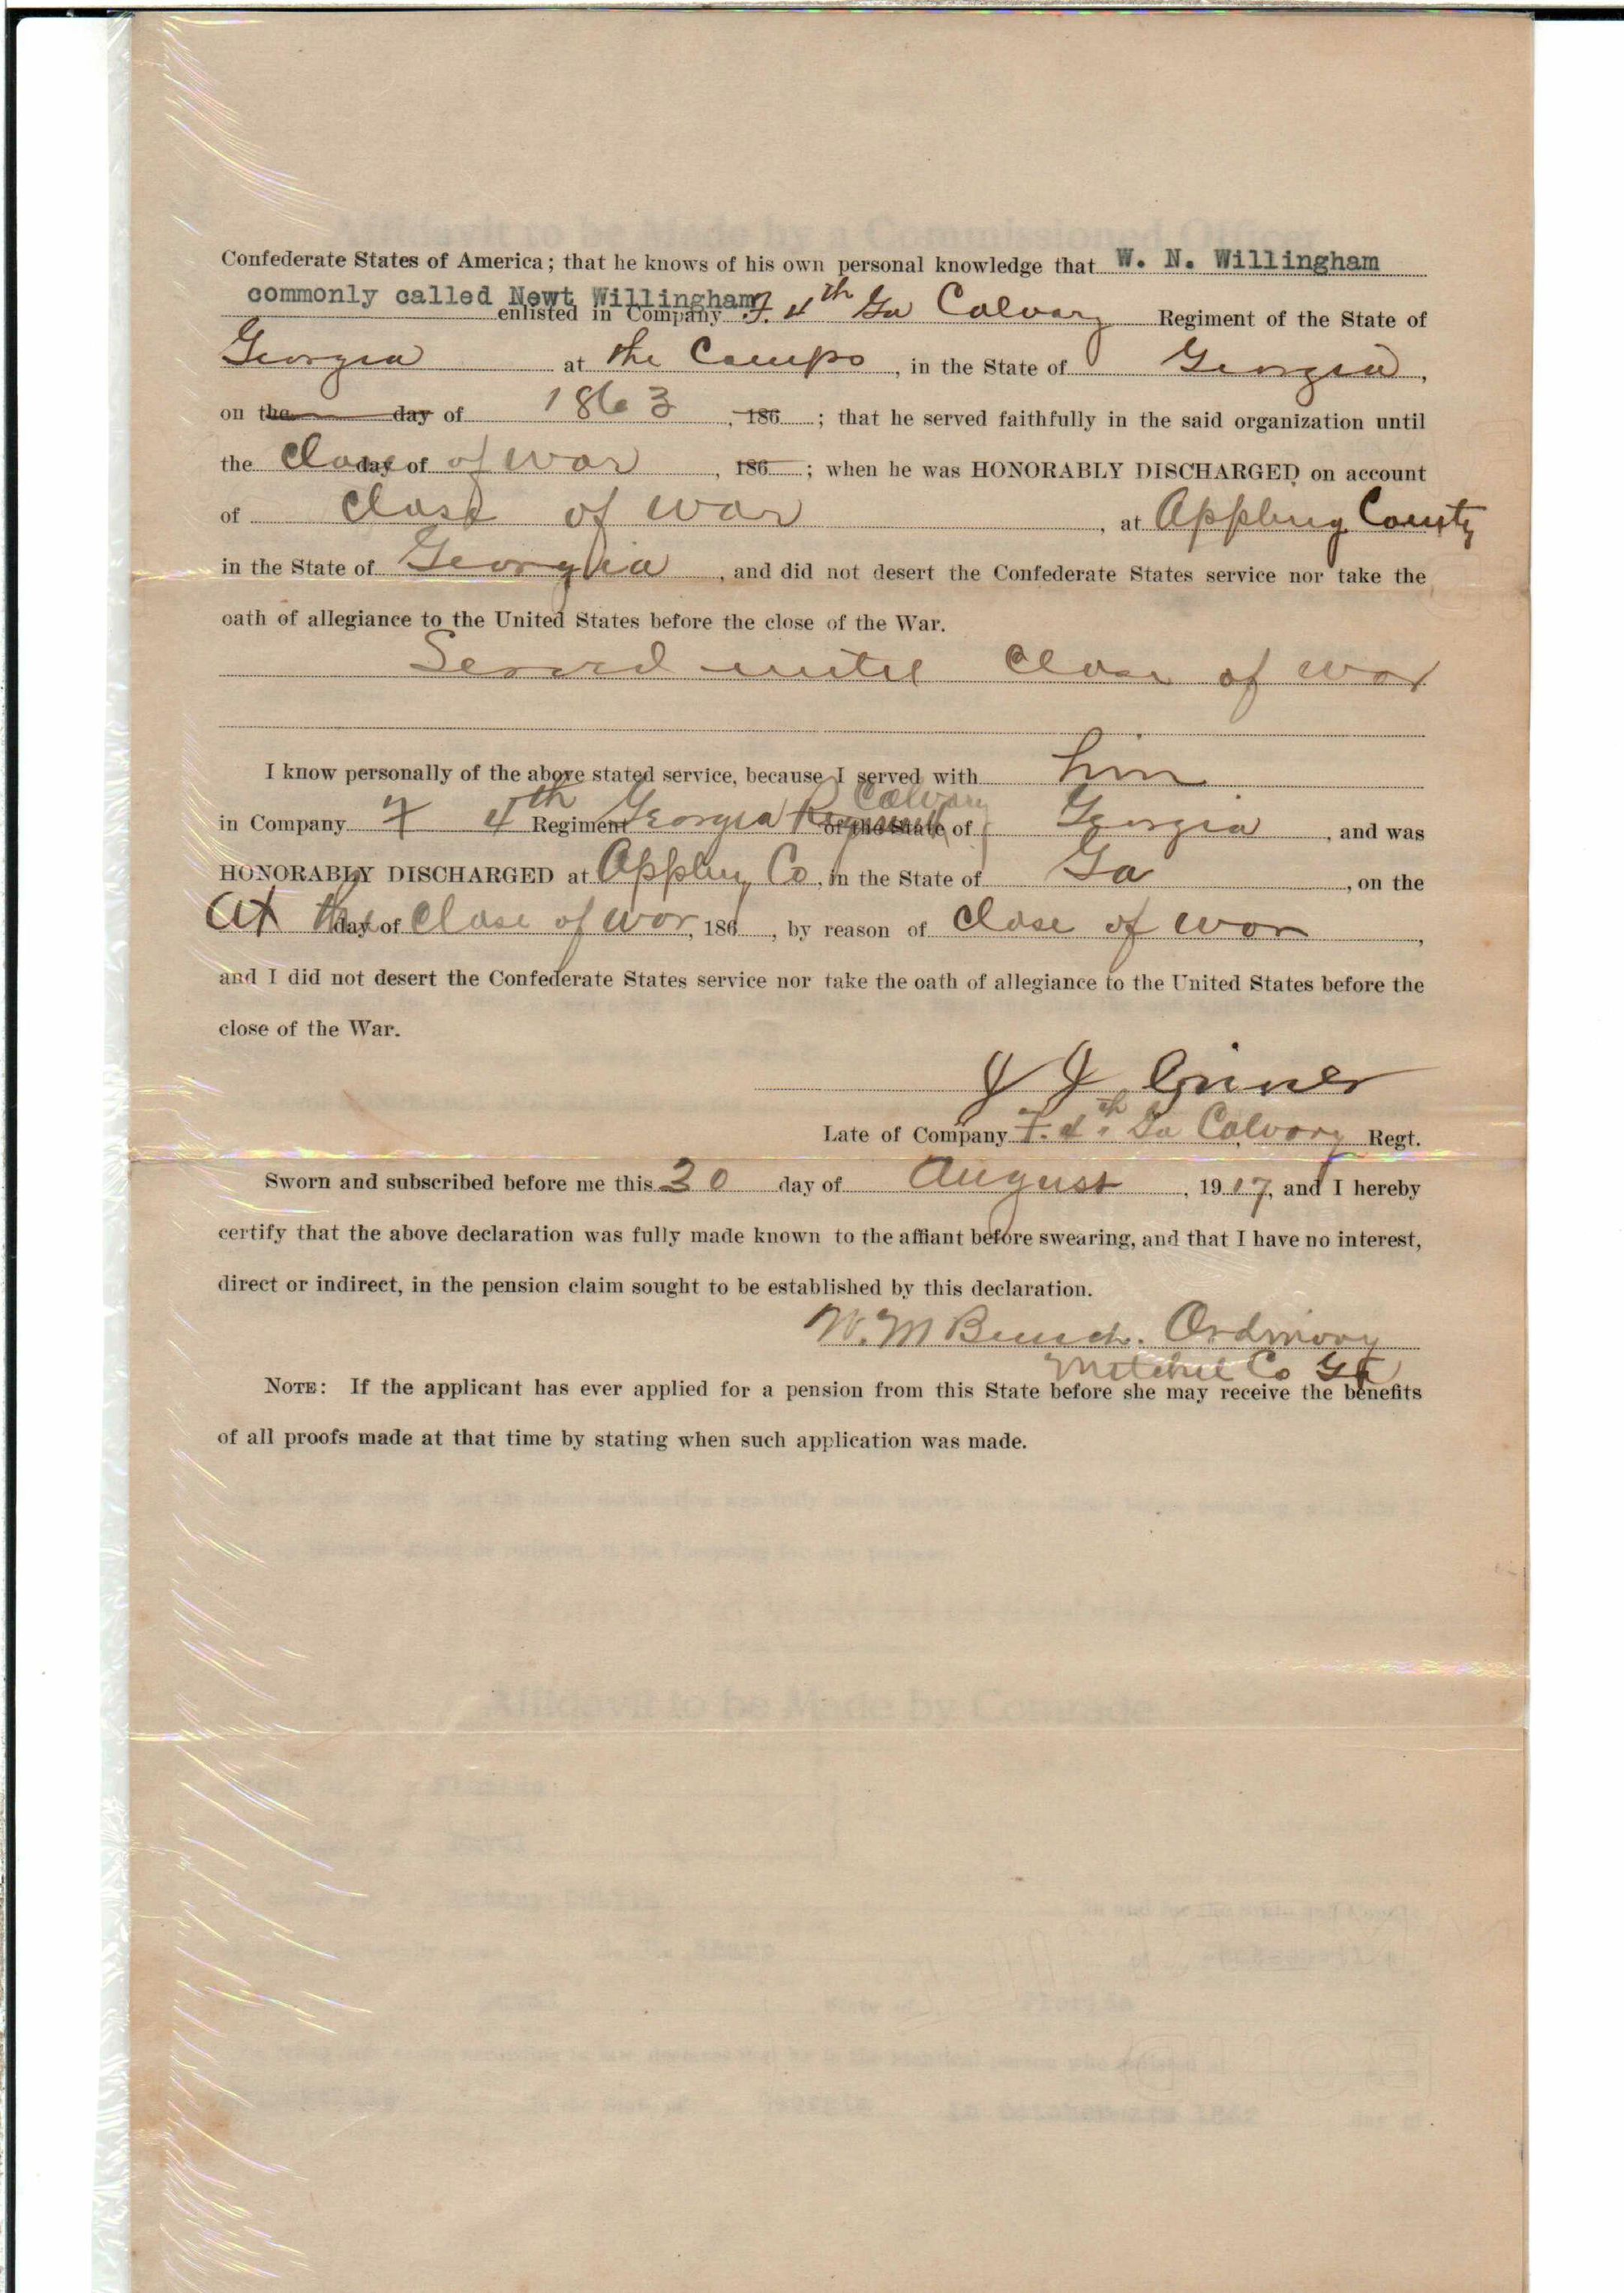 Confederate States of America; that he knows of his own personal knowledge that W. N. Willingham
commonly called Newt Willingham enlisted in Company F. 4th Ga Calvary Regiment of the State of
Georgia at the Camps, in the State of Georgia,
on the day of 1863, 186 ; that he served faithfully in the said organization until
the Close day of of war, 186 ; when he was HONORABLY DISCHARGED on account
of Close of war, at Appling County
in the State of Georgia, and did not desert the Confederate States service nor take the
oath of allegiance to the United States before the close of the War.
Served until Close of war
I know personally of the above stated service, because I served with him
in Company F 4th Regiment Georgia Calvary of the State of Georgia, and was
HONORABLY DISCHARGED at Appling Co, in the State of Ga, on the
At the day of Close of war, 186 , by reason of Close of war,
and I did not desert the Confederate States service nor take the oath of allegiance to the United States before the
close of the War.
J J Griner
Late of Company F. 4th Ga Calvary Regt.
Sworn and subscribed before me this 30 day of August, 1917, and I hereby
certify that the above declaration was fully made known to the affiant before swearing, and that I have no interest,
direct or indirect, in the pension claim sought to be established by this declaration.
W. M Ordinary
Mitchel Co Ga
NOTE: If the applicant has ever applied for a pension from this State before she may receive the benefits
of all proofs made at that time by stating when such application was made.